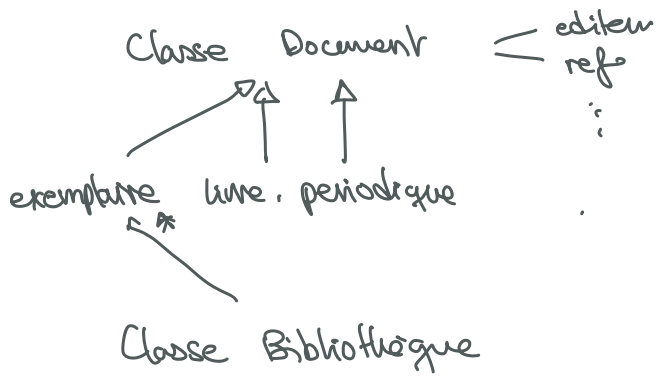 Classe Document
editeur
ref
exemplaire * livre . periodique
Classe Bibliothèque